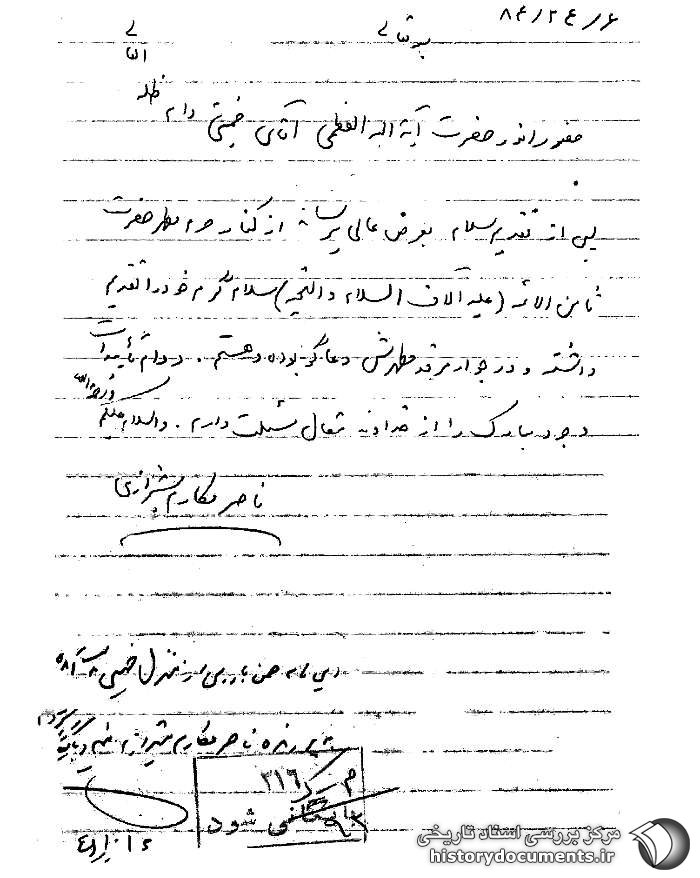 ۸۴/۲۴/۶
بسمه تعالی
حضور انور حضرت آیة الله العظمی آقای خمینی دام ظله
پس از تقدیم سلام بعرض عالی میرساند از کنار حرم مطهر حضرت
ثامن الائمه (علیه آلاف السلام والتحیه) سلام گرم خود را تقدیم
داشته و در جوار مرقد مطهرش دعاگو بوده و هستم. دوام تأییدات
وجود مبارک را از خداوند متعال مسئلت دارم. والسلام علیکم
ورحمة الله
ناصر مکارم شیرازی
این نامه ضمن بازرسی از منزل خمینی
پرونده ناصر مکارم شیرازی
۳۱۶
بایگانی شود
مرکز بررسی اسناد تاریخی
historydocuments.ir